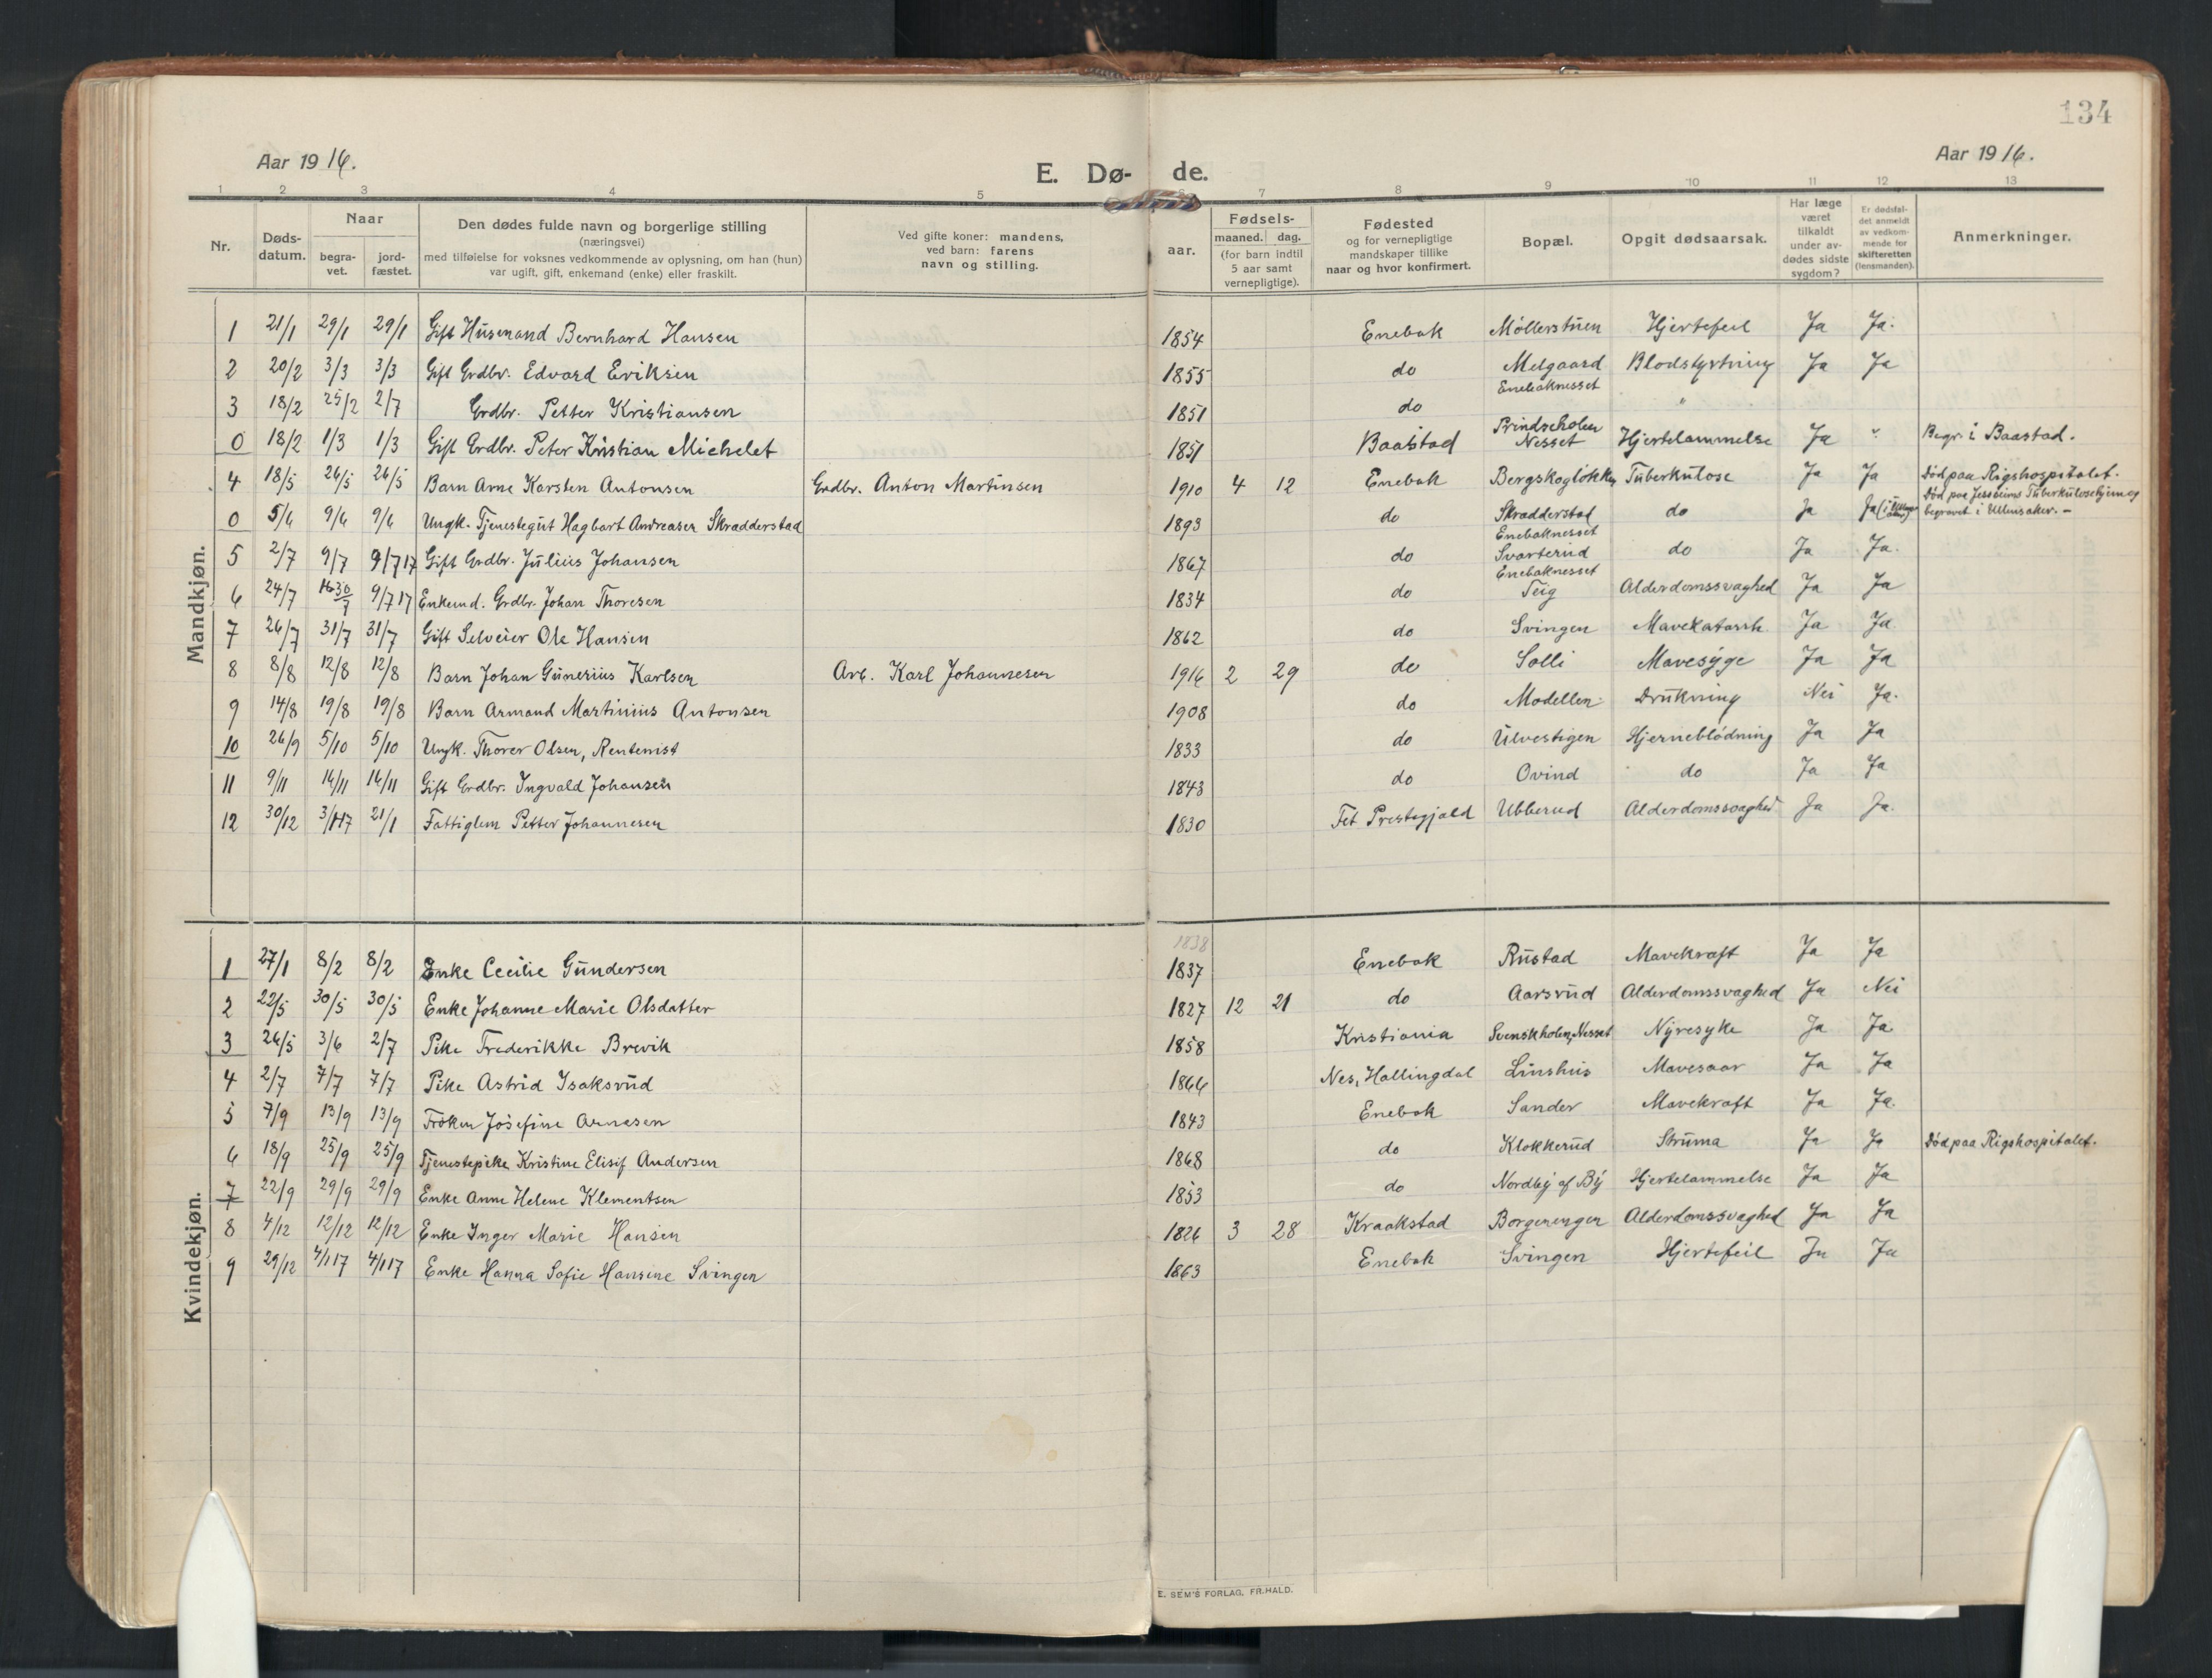 134
Aar 1916.
E. Dø- de.
Aar 1916.
1 2 3 4 5 6 7 8 9 10 11 12 13
Nr.
Døds-datum.
Naar
begra-vet.
jord-fæstet.
Den dødes fulde navn og borgerlige stilling
(næringsvei)
med tilføielse for voksnes vedkommende av oplysning, om han (hun)
var ugift, gift, enkemand (enke) eller fraskilt.
Ved gifte koner: mandens,
ved barn: farens
navn og stilling.
aar.
Fødsels-
maaned. dag.
(for barn indtil
5 aar samt
vernepligtige).
Fødested
og for vernepligtige
mandskaper tillike
naar og hvor konfirmert.
Bopæl.
Opgit dødsaarsak.
Har læge
været
tilkaldt
under av-
dødes sidste
sygdom?
Er dødsfal-
det anmeldt
av vedkom-
mende for
skifteretten
(lensmanden).
Anmerkninger.
Mandkjøn.
1 21/1 29/1 29/1 Gift Husmand Bernhard Hansen 1854 Enebak Møllerstuen Hjertefeil Ja Ja.
2 20/2 3/3 3/3 Gift Grdbr. Edvard Eriksen 1855 do Melgaard Blodstyrtning Ja Ja
3 18/2 25/2 2/7 Grdbr. Petter Kristiansen 1851 do Enebaknesset "
0 18/2 1/3 1/3 Gift Grdbr. Peter Kristian Michelet 1851 Baastad Prindseholen Nesset Hjertelammelse Ja " Begr. i Baastad.
4 18/5 26/5 26/5 Barn Arne Karsten Antonsen Grdbr. Anton Martinsen 1910 4 12 Enebak Bergskogløkken Tuberkulose Ja Ja Død paa Rigshospitalet.
0 5/6 9/6 9/6 Ungk. Tjenestegut Hagbart Andreasen Skradderstad 1893 do Skradderstad do Ja Ja Død paa Jessheims Tuberkulosehjem og
begravet i Ullensaker. –
5 2/7 9/7 9/7 17 Gift Grdbr. Julius Johansen 1867 do Enebaknesset Svarterud do Ja Ja.
6 24/7 30/7 9/7 17 Enkemd. Grdbr. Johan Thoresen 1834 do Enebaknesset Teig Alderdomssvaghed Ja Ja
7 26/7 31/7 31/7 Gift Selveier Ole Hansen 1862 do Svingen Mavekatarrh. Ja Ja
8 8/8 12/8 12/8 Barn Johan Gunerius Karlsen Arb. Karl Johannesen 1916 2 29 do Solli Mavesyge Ja Ja
9 14/8 19/8 19/8 Barn Armand Martinius Antonsen 1908 do Modellen Drukning Nei Ja.
10 26/9 5/10 5/10 Ungk. Thorer Olsen, Rentenist 1833 do Ulvestigen Hjerneblödning Ja Ja
11 9/11 14/11 14/11 Gift Grdbr. Ingvald Johansen 1843 do Ovind do Ja Ja
12 30/12 3/1 17 21/1 Fattiglem Petter Johannesen 1830 Fet Prestegjæld Ubberud Alderdomssvaghed Ja Ja.
Kvindekjøn.
1838
1 27/1 8/2 8/2 Enke Cecilie Gundersen 1837 Enebak Rustad Mavekræft Ja Ja
2 22/5 30/5 30/5 Enke Johanne Marie Olsdatter 1827 12 21 do Aarsrud Alderdomssvaghed Ja Nei
3 26/5 3/6 2/7 Pike Frederikke Brevik 1858 Kristiania Svenskholen, Nesset Nyresyke Ja Ja
4 2/7 7/7 7/7 Pike Astrid Isaksrud 1866 Nes, Hallingdal Linshus Mavesaar Ja Ja
5 7/9 13/9 13/9 Frøken Josefine Arnesen 1843 Enebak Sander Mavekræft Ja Ja.
6 18/9 25/9 25/9 Tjenestepike Kristine Elisif Andersen 1868 do Klokkerud Struma Ja Ja Død paa Rigshospitalet.
7 22/9 29/9 29/9 Enke Anne Helene Klementsen 1853 do Nordby af By Hjertelammelse Ja Ja
8 4/12 12/12 12/12 Enke Inger Marie Hansen 1826 3 28 Kraakstad Borgerengen Alderdomssvaghed Ja Ja
9 29/12 4/1 17 4/1 17 Enke Hanna Sofie Hansine Svingen 1863 Enebak Svingen Hjertefeil Ja Ja
E. SEM'S FORLAG, FR.HALD.